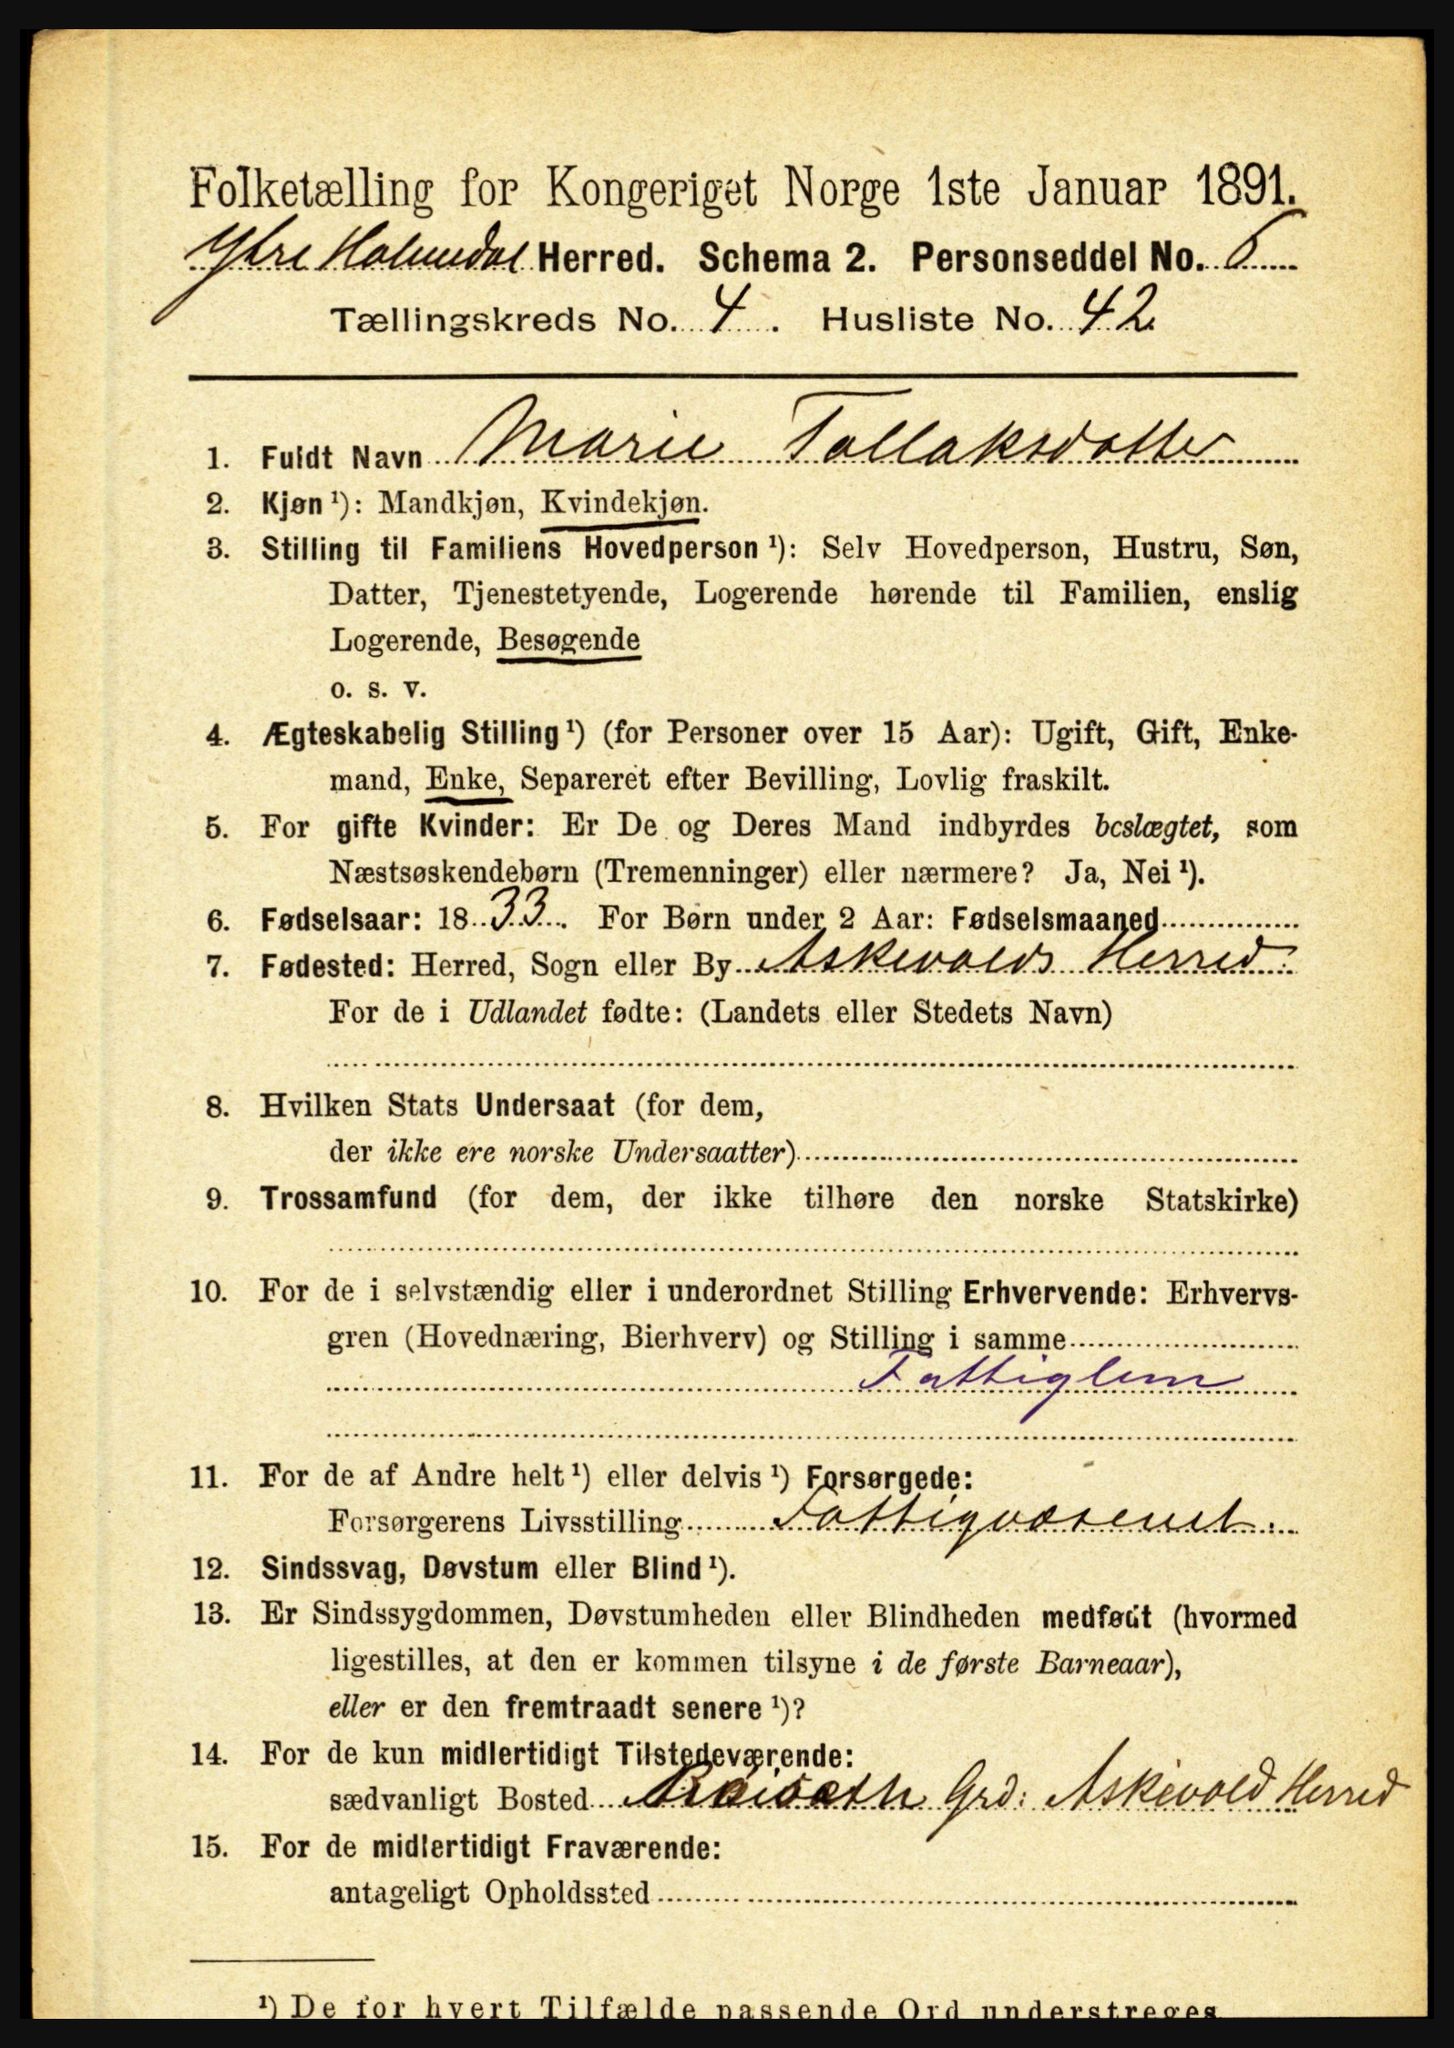 Folketælling for Kongeriget Norge 1ste Januar 1891.
Ytre Holmedal Herred. Schema 2. Personseddel No. 6
Tællingskreds No. 4. Husliste No. 42
1. Fuldt Navn Marie Tollaksdatter
2. Kjøn ¹): Mandkjøn, Kvindekjøn.
3. Stilling til Familiens Hovedperson ¹): Selv Hovedperson, Hustru, Søn,
Datter, Tjenestetyende, Logerende hørende til Familien, enslig
Logerende, Besøgende
o. s. v.
4. Ægteskabelig Stilling ¹) (for Personer over 15 Aar): Ugift, Gift, Enke-
mand, Enke, Separeret efter Bevilling, Lovlig fraskilt.
5. For gifte Kvinder: Er De og Deres Mand indbyrdes beslægtet, som
Næstsøskendebørn (Tremenninger) eller nærmere? Ja, Nei ¹).
6. Fødselsaar: 1833. For Børn under 2 Aar: Fødselsmaaned
7. Fødested: Herred, Sogn eller By Askevolds Herred.
For de i Udlandet fødte: (Landets eller Stedets Navn)
8. Hvilken Stats Undersaat (for dem,
der ikke ere norske Undersaatter)
9. Trossamfund (for dem, der ikke tilhøre den norske Statskirke)
10. For de i selvstændig eller i underordnet Stilling Erhvervende: Erhvervs-
gren (Hovednæring, Bierhverv) og Stilling i samme
Fattiglem
11. For de af Andre helt ¹) eller delvis ¹) Forsørgede:
Forsørgerens Livsstilling Fattigvæsenet.
12. Sindssvag, Døvstum eller Blind ¹).
13. Er Sindssygdommen, Døvstumheden eller Blindheden medfødt (hvormed
ligestilles, at den er kommen tilsyne i de første Barneaar),
eller er den fremtraadt senere ¹)?
14. For de kun midlertidigt Tilstedeværende:
sædvanligt Bosted Grd: Askevold Herred
15. For de midlertidigt Fraværende:
antageligt Opholdssted
¹) De for hvert Tilfælde passende Ord understreges